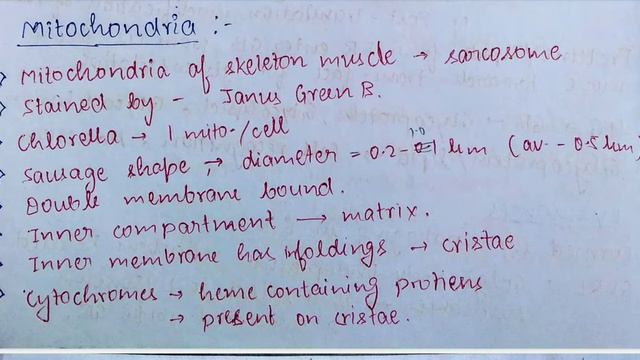 Mitochondria :-
Mitochondria of skeleton muscle → sarcosome
Stained by - Janus Green B.
Chlorella → 1 mito-/cell
Sausage shape → diameter = 0.2-1.0 µm (av. - 0.5 µm)
Double membrane bound.
Inner compartment → matrix.
Inner membrane has infoldings → cristae
Cytochromes → heme containing protiens
→ present on cristae.